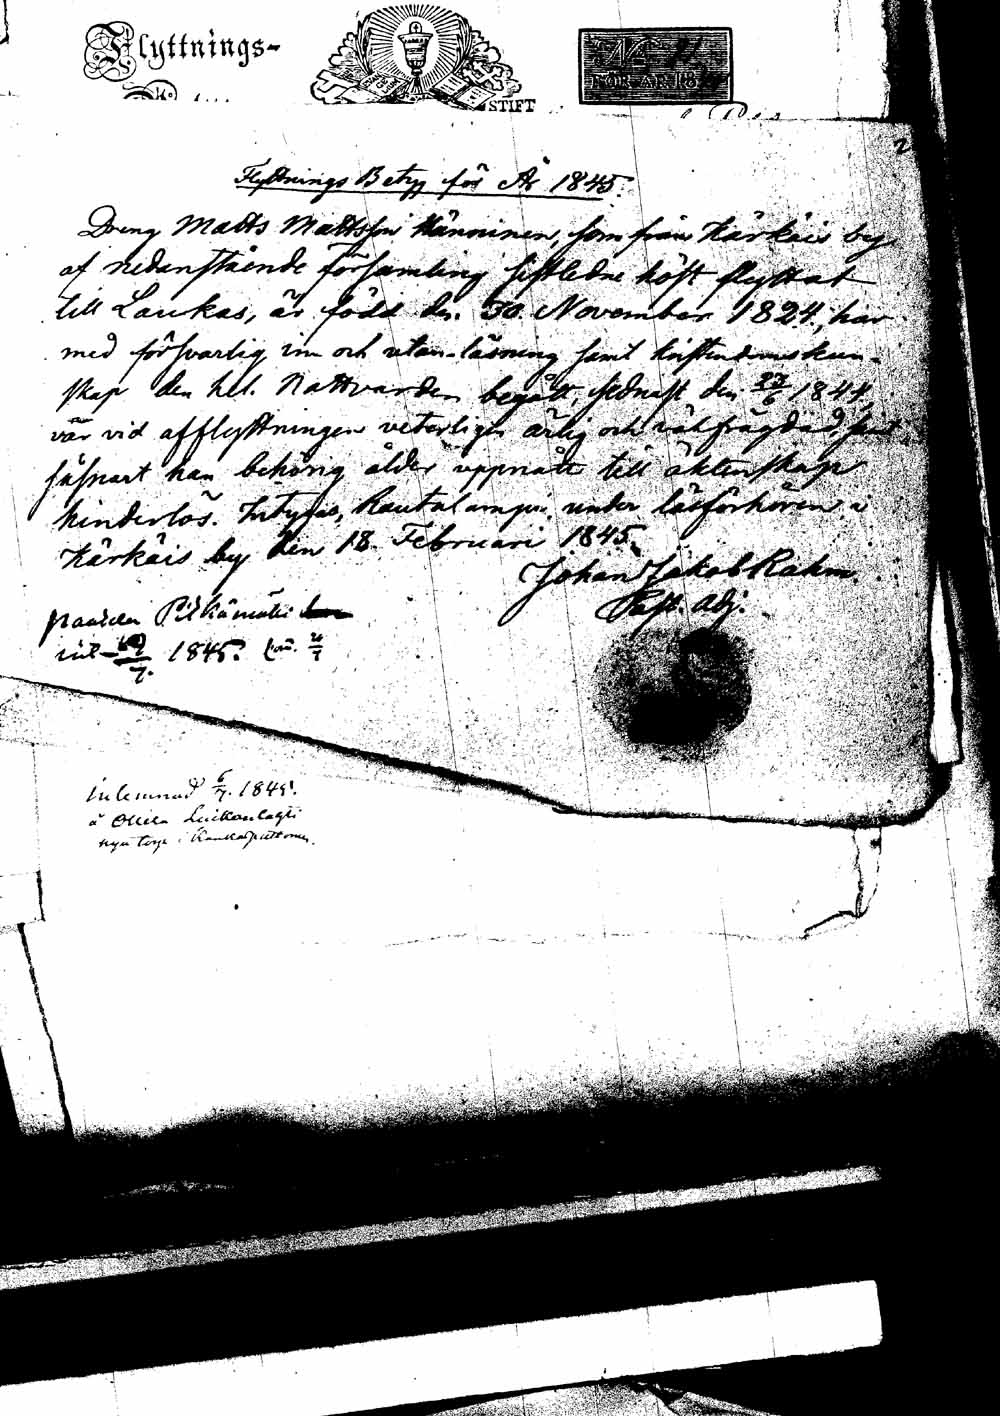 Flyttnings-
STIFT
No
FÖR ÅR 18
2
Flyttnings Betyg för År 1845.
Dreng Matts Mattsson Känninen, som från Kärkäis by
af nedanstående församling sistledne höst flyttat
till Laukas, är född den 30 November 1824, har
med försvarlig inn och utan-läsning samt kristendomskun-
skap den hel. Nattvarden begått, sednast den 23/6 1844,
var vid afflyttningen veterligen ärlig och välfrägdad, samt
såsnart han behörig ålder uppnått till äktenskap
hinderlös. Intygas, Rautalampi, under läsförhören i
Kärkäis by den 18 Februari 1845.
Johan Jakob Rahm.
Past. adj.
Pitkämäki
1845.
inlemnad 6/7. 1845.
å
nya torp i